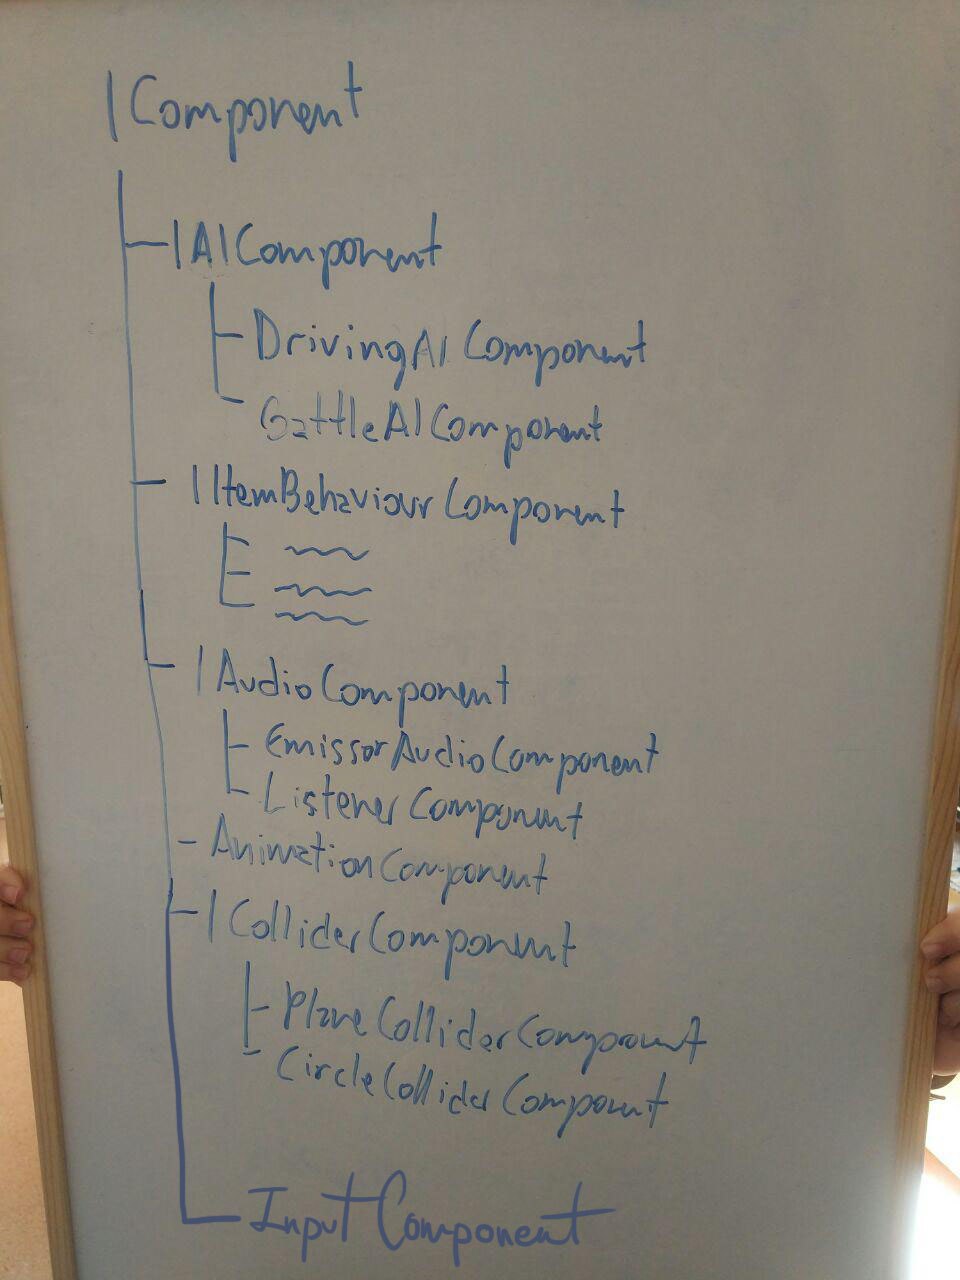 IComponent
IAIComponent
DrivingAIComponent
BattleAIComponent
IItemBehaviourComponent
IAudioComponent
EmissorAudioComponent
ListenerComponent
AnimationComponent
IColliderComponent
PlaneColliderComponent
CircleColliderComponent
InputComponent